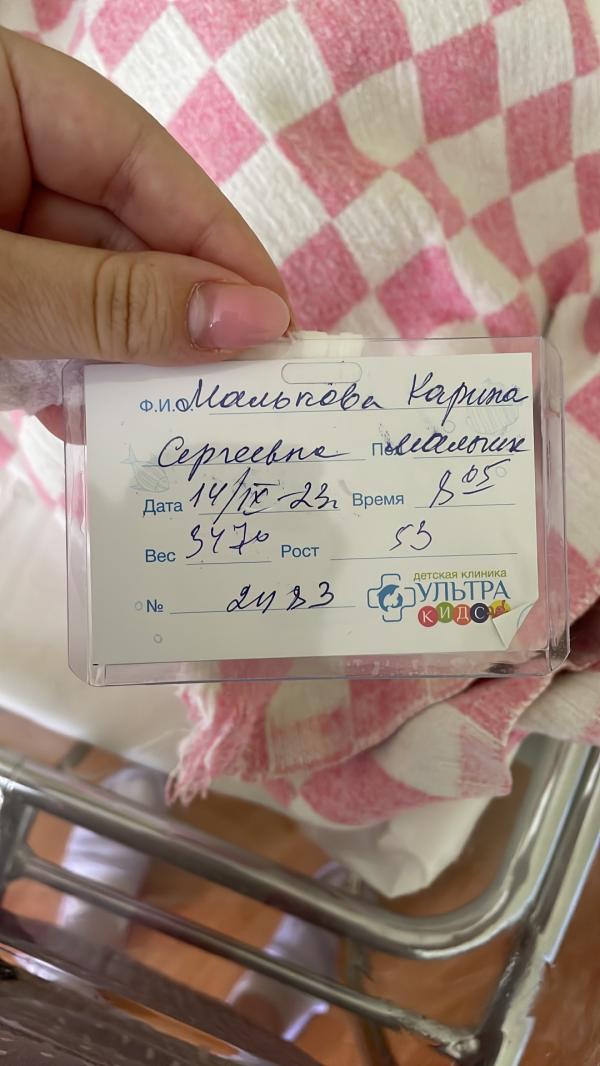 Ф.И.О. Малькова Карина
Сергеевна Пол мальчик
Дата 14/IX-23г Время 8 05
Вес 3470 Рост 53
№ 2483
детская клиника
УЛЬТРА
КИДС